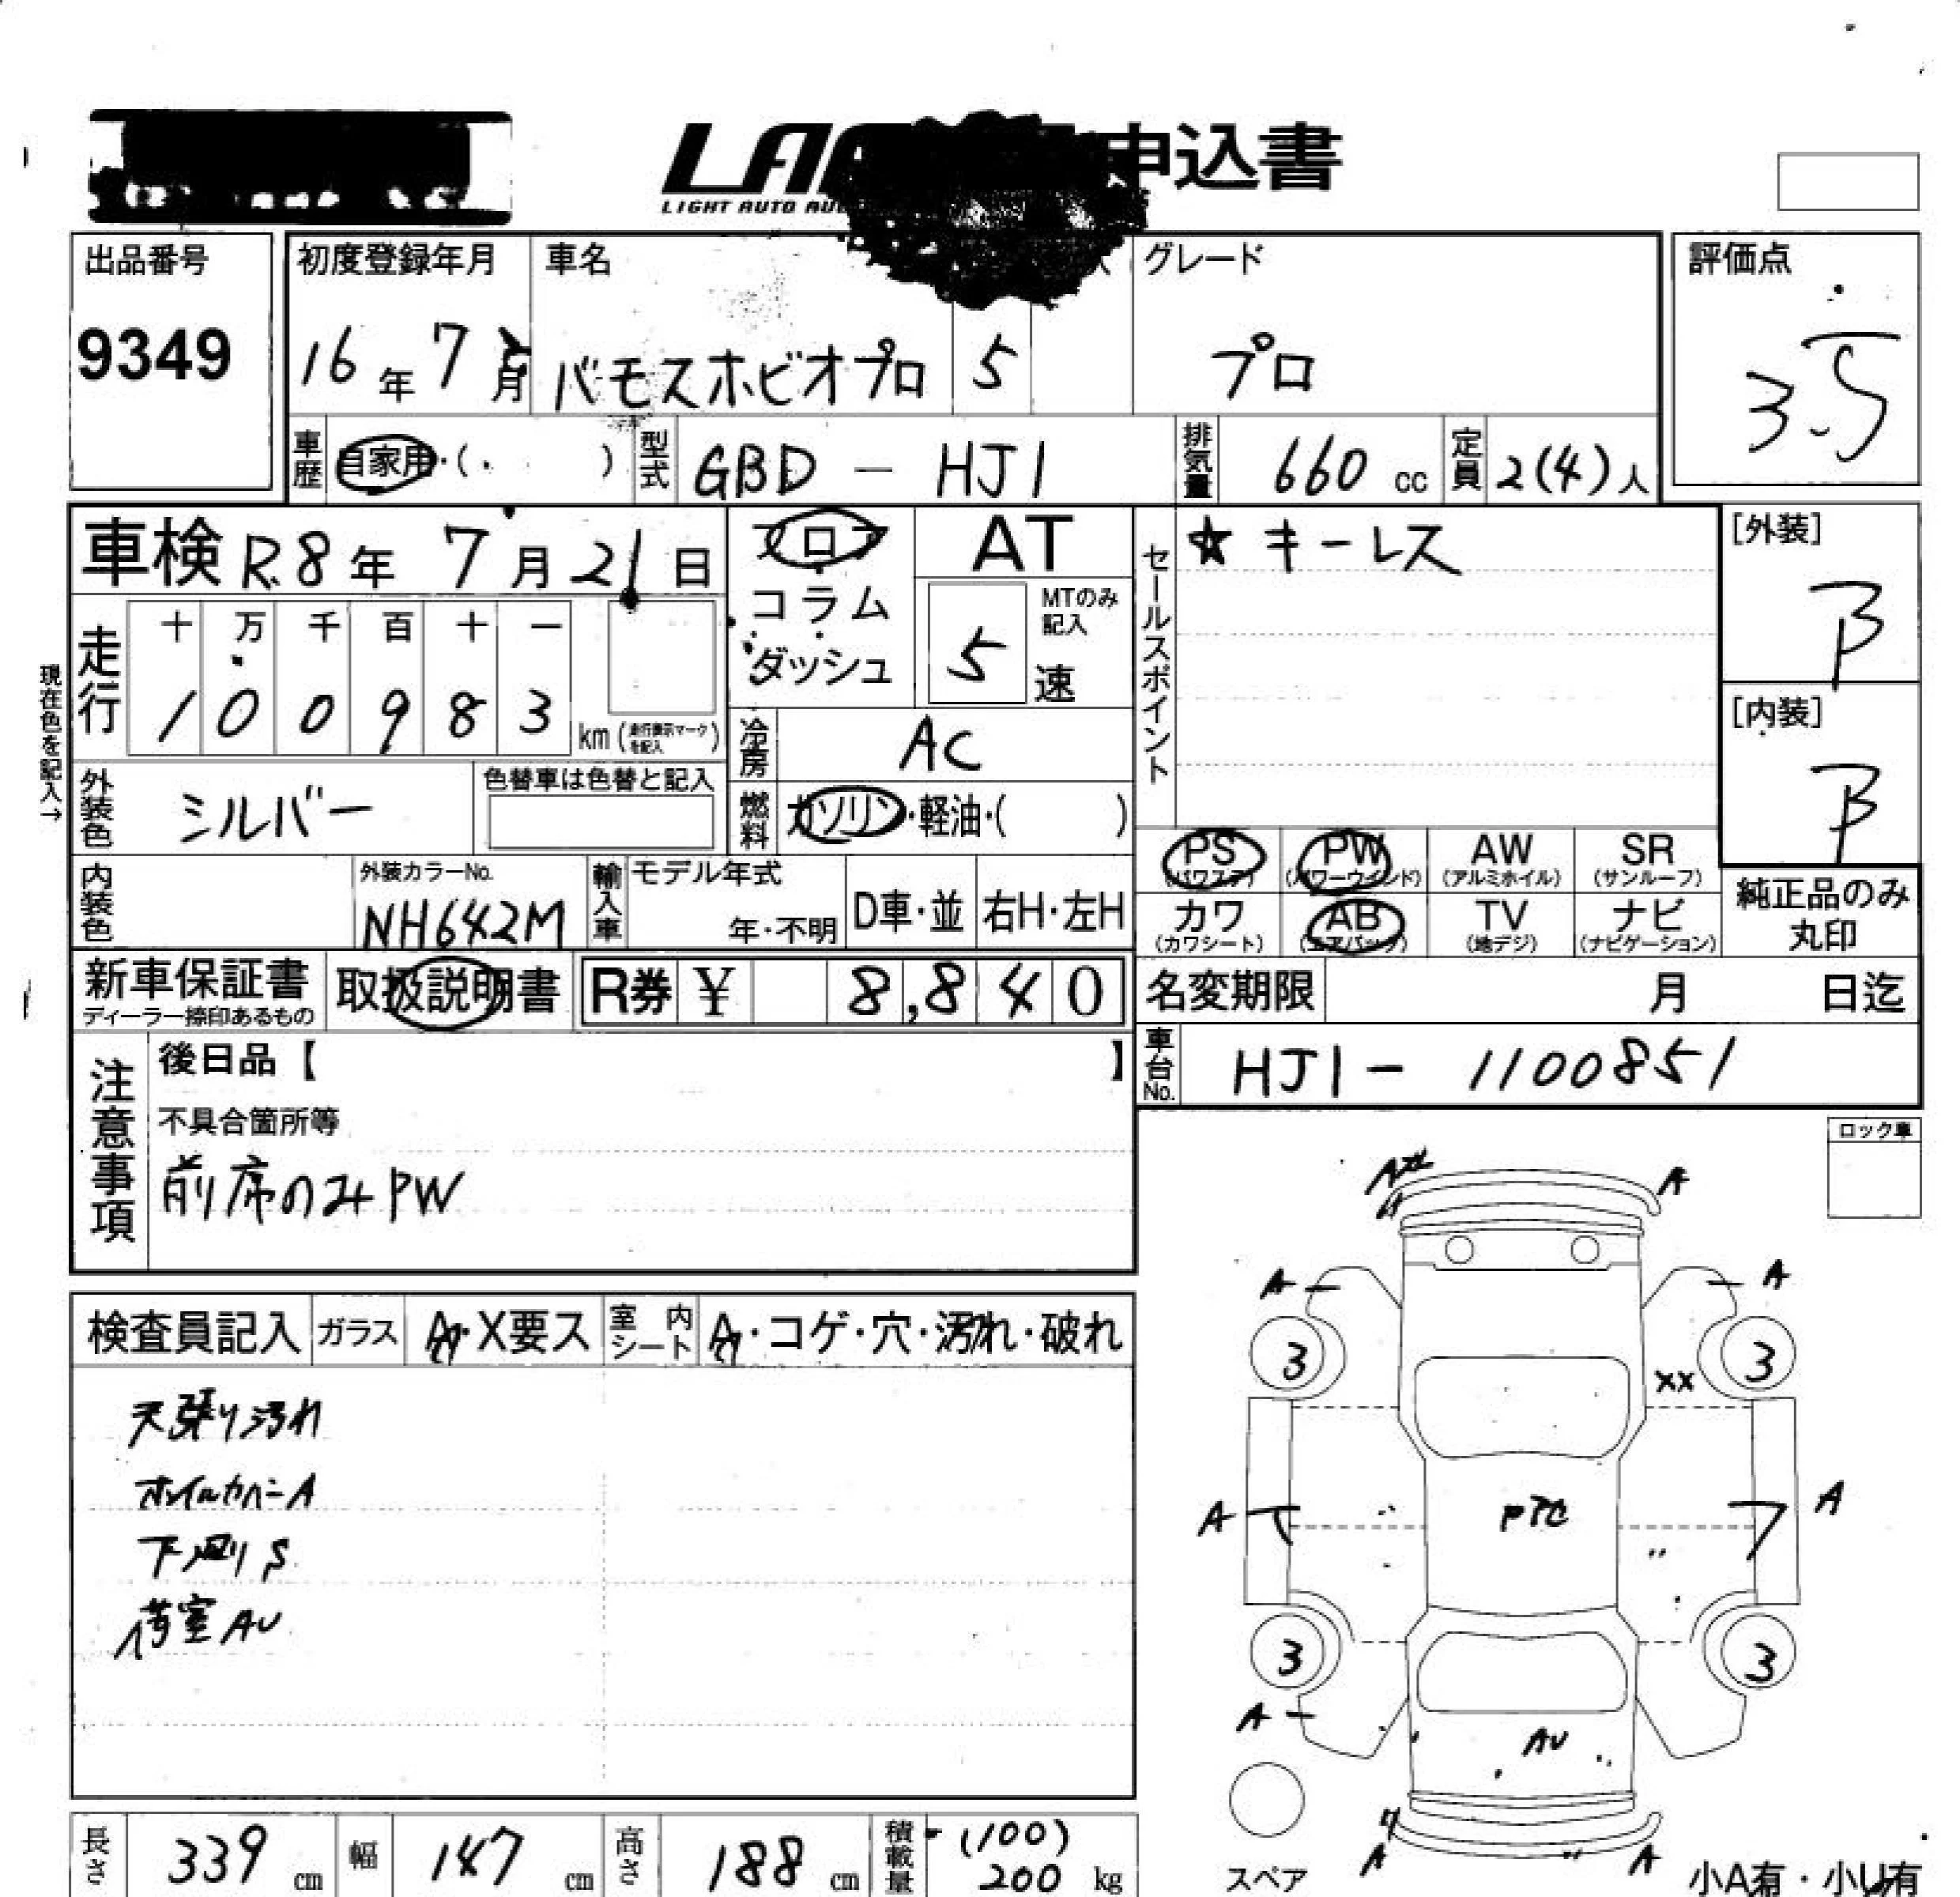 申込書
LIGHT AUTO
出品番号 初度登録年月 車名 グレード 評価点
9349 16年 7月 バモスホビオプロ 5 プロ 3.5
車歴 自家用・( ) 型式 GBD - HJ1 排気量 660 cc 定員 2(4)人
車検 R8年 7月21日 フロア AT ☆ キーレス [外装]
コラム MTのみ記入 セールスポイント B
走行 十 万 千 百 十 一 ダッシュ 5 速
1 0 0 9 8 3 km (走行表示マークを記入) [内装]
現在色を記入→ 冷房 AC B
外装色 シルバー 色替車は色替と記入 燃料 ガソリン・軽油・( )
PS (パワステ) PW (パワーウインド) AW (アルミホイル) SR (サンルーフ)
内装色 外装カラーNo. NH642M 輸入車 モデル年式 年・不明 D車・並 右H・左H
カワ (カワシート) AB (エアバック) TV (地デジ) ナビ (ナビゲーション) 純正品のみ丸印
新車保証書 ディーラー捺印あるもの 取扱説明書 R券 ¥ 8,840 名変期限 月 日迄
車台No. HJ1 - 1100851
注意事項 後日品【 】
不具合箇所等
前席のみPW
ロック車
A
A
A A
検査員記入 ガラス A・X要ス 室内シート A・コゲ・穴・汚れ・破れ
3 3
XX
天張り汚れ
ホイルカバーA
A A
PTC
下廻りS
荷室AU
3 3
A
AU
A A
長さ 339 cm 幅 147 cm 高さ 188 cm 積載量 (100) 200 kg
スペア 小A有・小U有